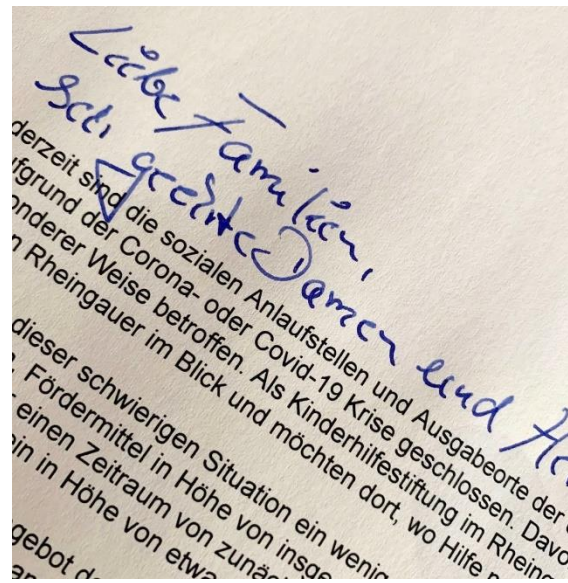 Liebe Familien,
Sehr geehrte Damen und
derzeit sind die sozialen Anlaufstellen und Ausgabeorte der
aufgrund der Corona- oder Covid-19 Krise geschlossen. Davo
onderer Weise betroffen. Als Kinderhilfestiftung im Rheing
n Rheingauer im Blick und möchten dort, wo Hilfe
dieser schwierigen Situation ein wenig
Fördermittel in Höhe von insge
einen Zeitraum von zunäc
in in Höhe von etwa
gebot de